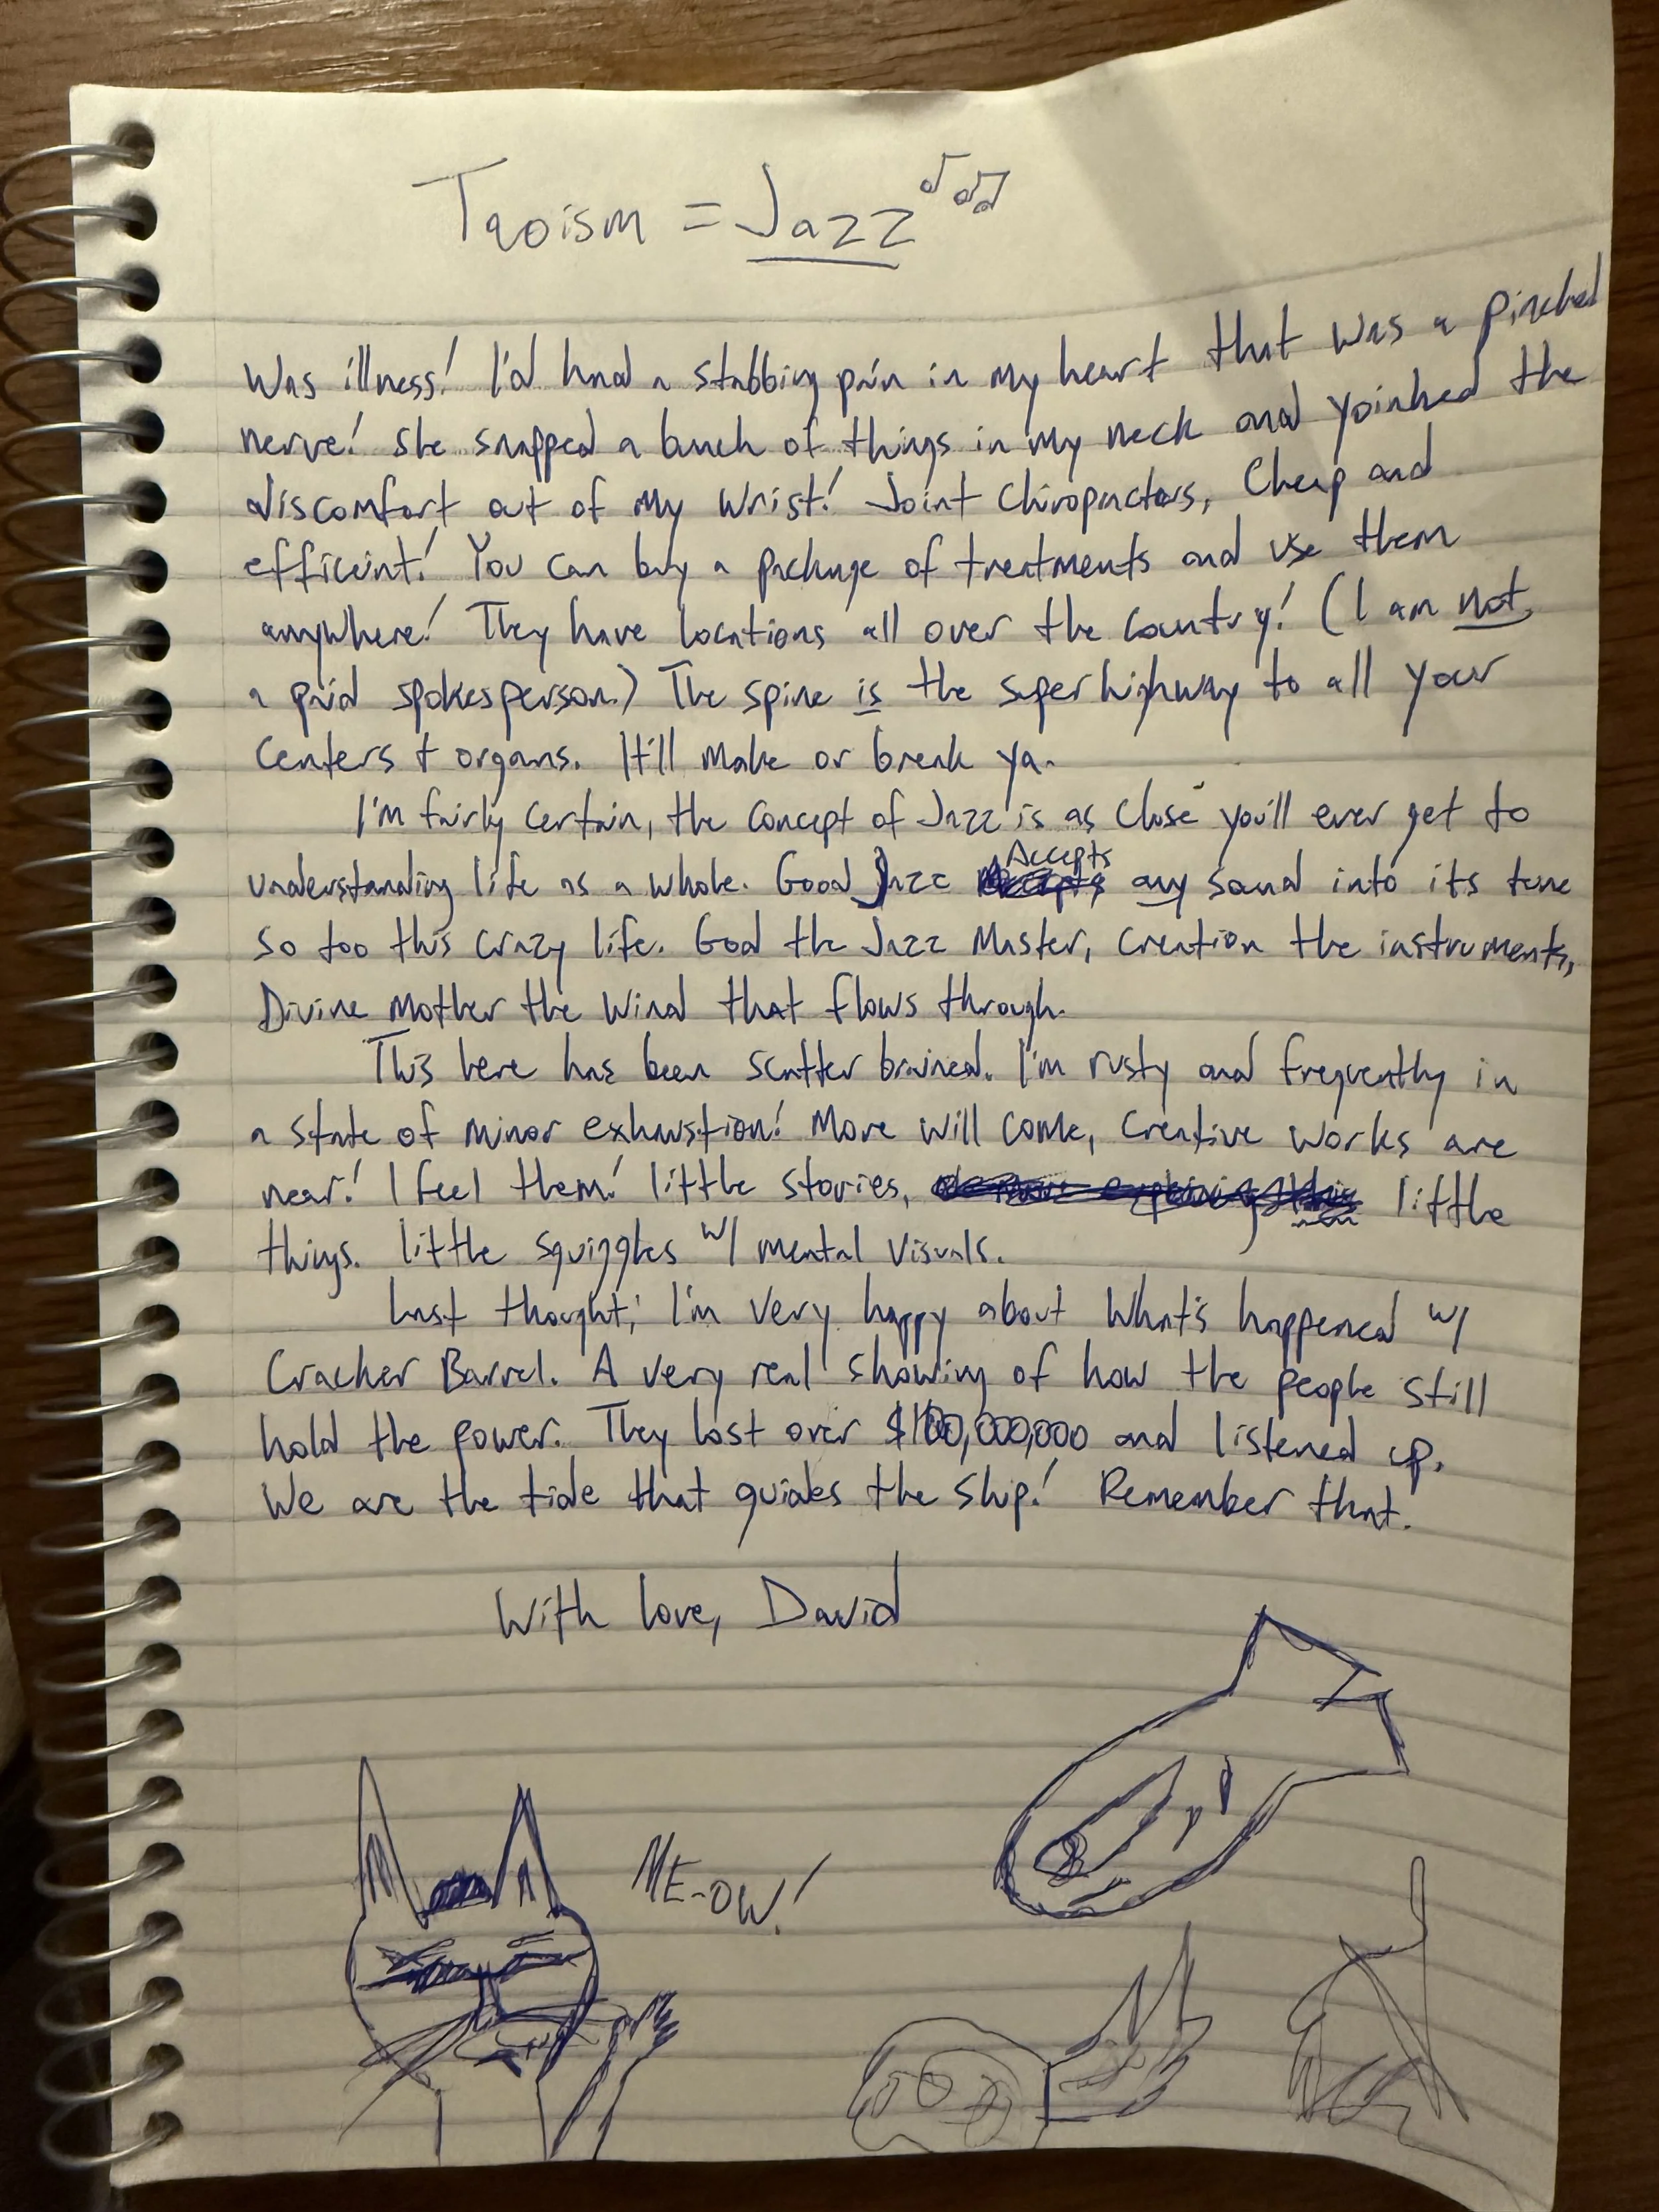 Taoism = Jazz
Was illness! I'd had a stabbing pain in my heart that was a pinched
nerve! She snapped a bunch of things in my neck and yoinked the
discomfort out of my wrist! Joint Chiropractors, Cheap and
efficient! You can buy a package of treatments and use them
anywhere! They have locations all over the country! (I am not
a paid spokesperson.) The spine is the super highway to all your
centers & organs. It'll make or break ya.
I'm fairly certain, the concept of Jazz is as close you'll ever get to
understanding life as a whole. Good Jazz Accepts any sound into its tune
so too this crazy life. God the Jazz Master, Creation the instruments,
Divine Mother the Wind that flows through.
This here has been scatter brained. I'm rusty and frequently in
a state of minor exhaustion! More will come, creative works are
near! I feel them! little stories, little
things. little squiggles w/ mental visuals.
Last thought; I'm very happy about what's happened w/
Cracker Barrel. A very real showing of how the people still
hold the power. They lost over $100,000,000 and listened up.
We are the tide that guides the ship! Remember that.
With love, David
ME-OW!